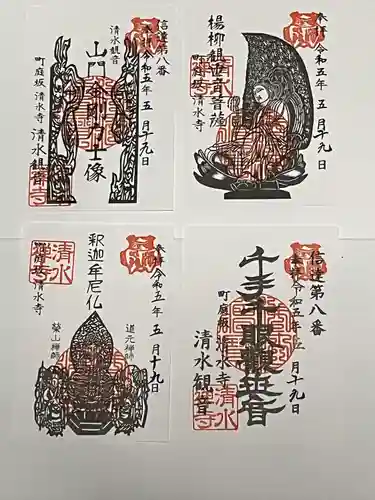 信達第八番
奉拝 令和五年五月十九日
清水観音
山門 金剛力士像
町庭坂 清水寺
清水観音寺
奉拝 令和五年五月十九日
楊柳観世音菩薩
町庭坂 清水寺
奉拝 令和五年五月十九日
釈迦牟尼仏
道元禅師
瑩山禅師
清水寺
清水
信達第八番
令和五年五月十九日
千手千眼観世音
町庭坂 清水寺
清水観音